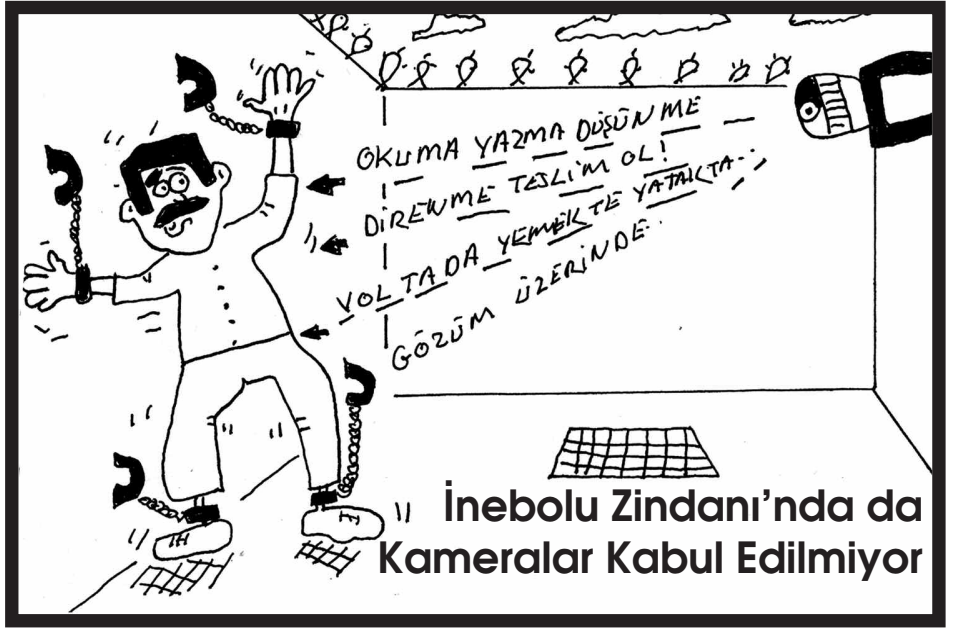 OKUMA YAZMA DÜŞÜNME
DİRENME TESLİM OL!
VOLTADA YEMEKTE YATAKTA..
GÖZÜM ÜZERİNDE..
İnebolu Zindanı’nda da
Kameralar Kabul Edilmiyor